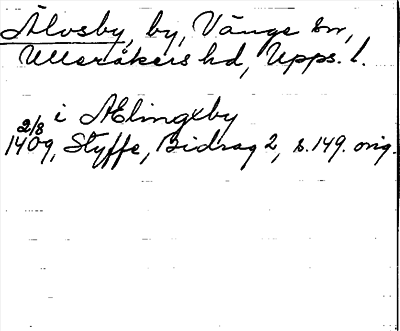 Älvsby, by, Vänge sn,
Ulleråkers hd, Upps. l.
i Ælingxby
2/8
1409, Styffe, Bidrag 2, s. 149. orig.